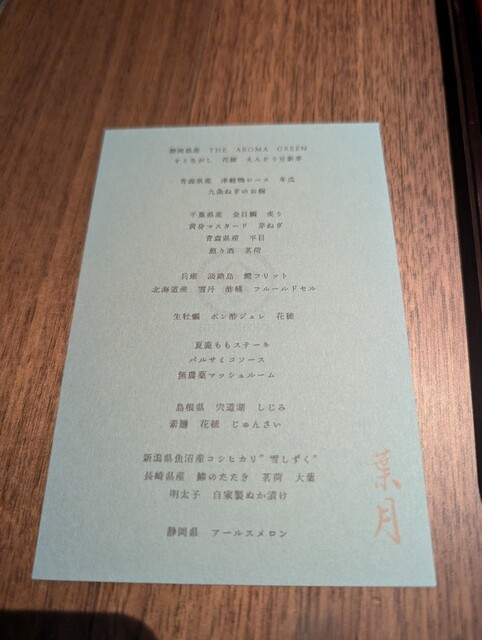 静岡県産 THE AROMA GREEN
そうめんかぼちゃ 花穂 えんどう豆新芽
青森県産 津軽鴨ロース 冬瓜
九条ねぎのお椀
千葉県産 金目鯛 炙り
黄身マスタード 芽ねぎ
青森県産 平目
煎り酒 茗荷
兵庫 淡路島 鱧フリット
北海道産 雲丹 酢橘 フルールドセル
生牡蠣 ポン酢ジュレ 花穂
夏鹿ももステーキ
バルサミコソース
無農薬マッシュルーム
島根県 宍道湖 しじみ
素麺 花穂 じゅんさい
新潟県魚沼産コシヒカリ"雪しずく"
長崎県産 鯵のたたき 茗荷 大葉
明太子 自家製ぬか漬け
静岡県 アールスメロン
葉月